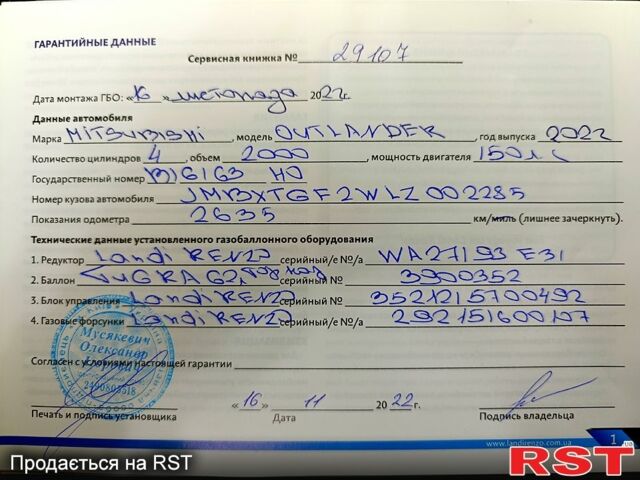 ГАРАНТИЙНЫЕ ДАННЫЕ
Сервисная книжка № 29107
Дата монтажа ГБО: «16» листопада 2022г.
Данные автомобиля
Марка MITSUBISHI, модель OUTLANDER, год выпуска 2020г
Количество цилиндров 4, объем 2000, мощность двигателя 150 лс
Государственный номер
Номер кузова автомобиля JMBXTGF2WLZ002285
Показания одометра 2635 км/миль (лишнее зачеркнуть).
Технические данные установленного газобаллонного оборудования
1. Редуктор Landi RENZO серийный/е №/а WA27193 E31
2. Баллон серийный/е № 3900352
3. Блок управления Landi RENZO серийный/е № 3521215700492
4. Газовые форсунки Landi RENZO серийный/е №/а 292151600107
Мусякевич
Олександр
2490803518
Согласен с условиями настоящей гарантии
«16» 11 2022г.
Печать и подпись установщика Дата Подпись владельца
www.landirenzo.com.ua 1
Продається на RST
RST